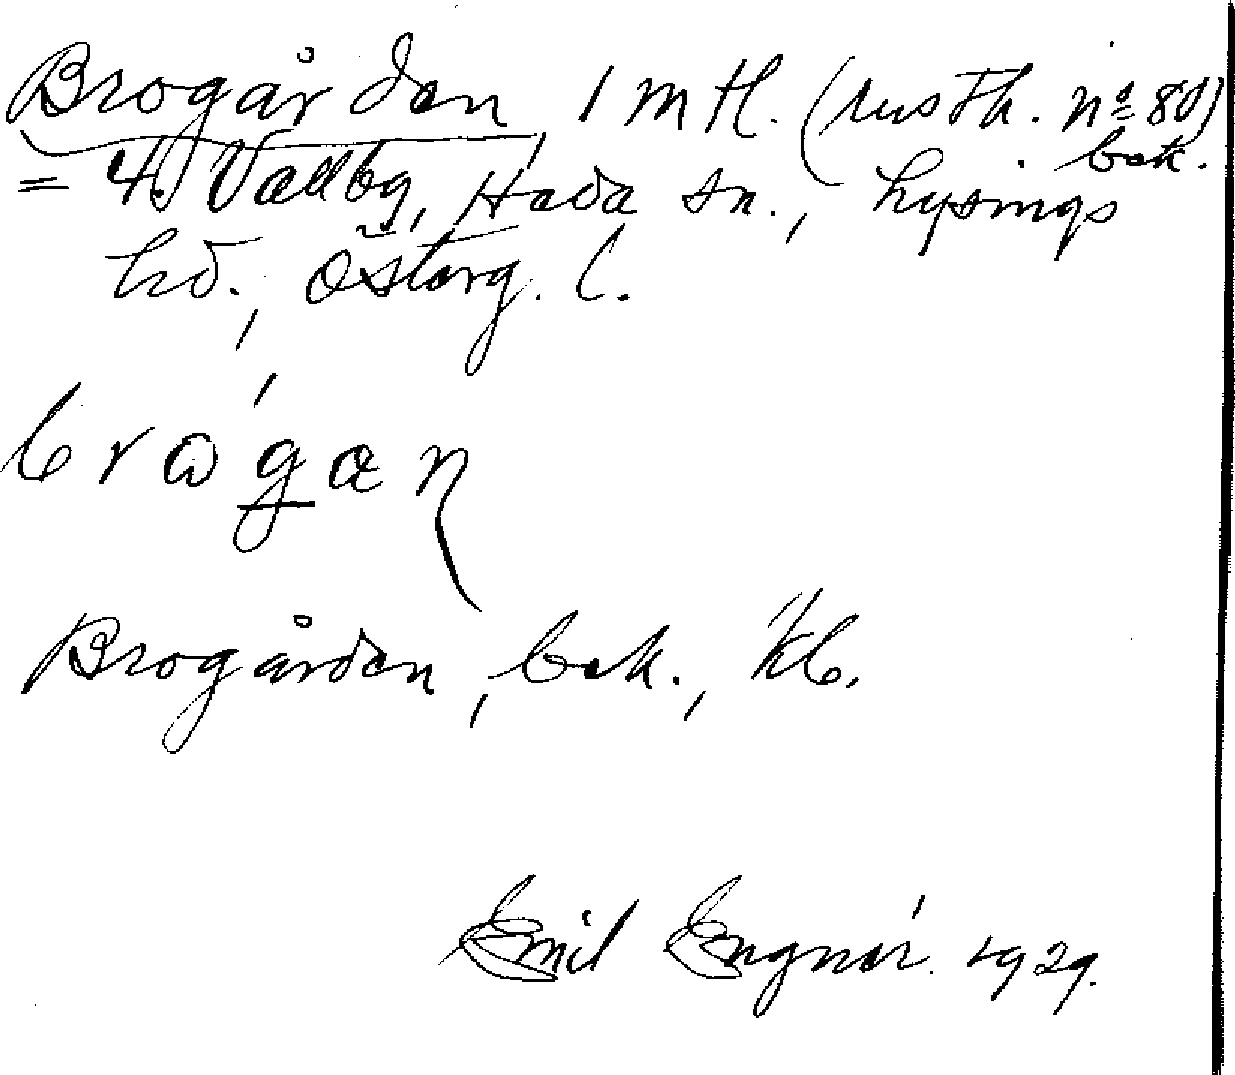 Brogården, 1 mtl. (rusth. nº 80)
bek.
= 4. Vallby, Heda sn., Lysings
hd., Österg. l.
Brogården, bek., Kb.
Emil Engnér. 1929.